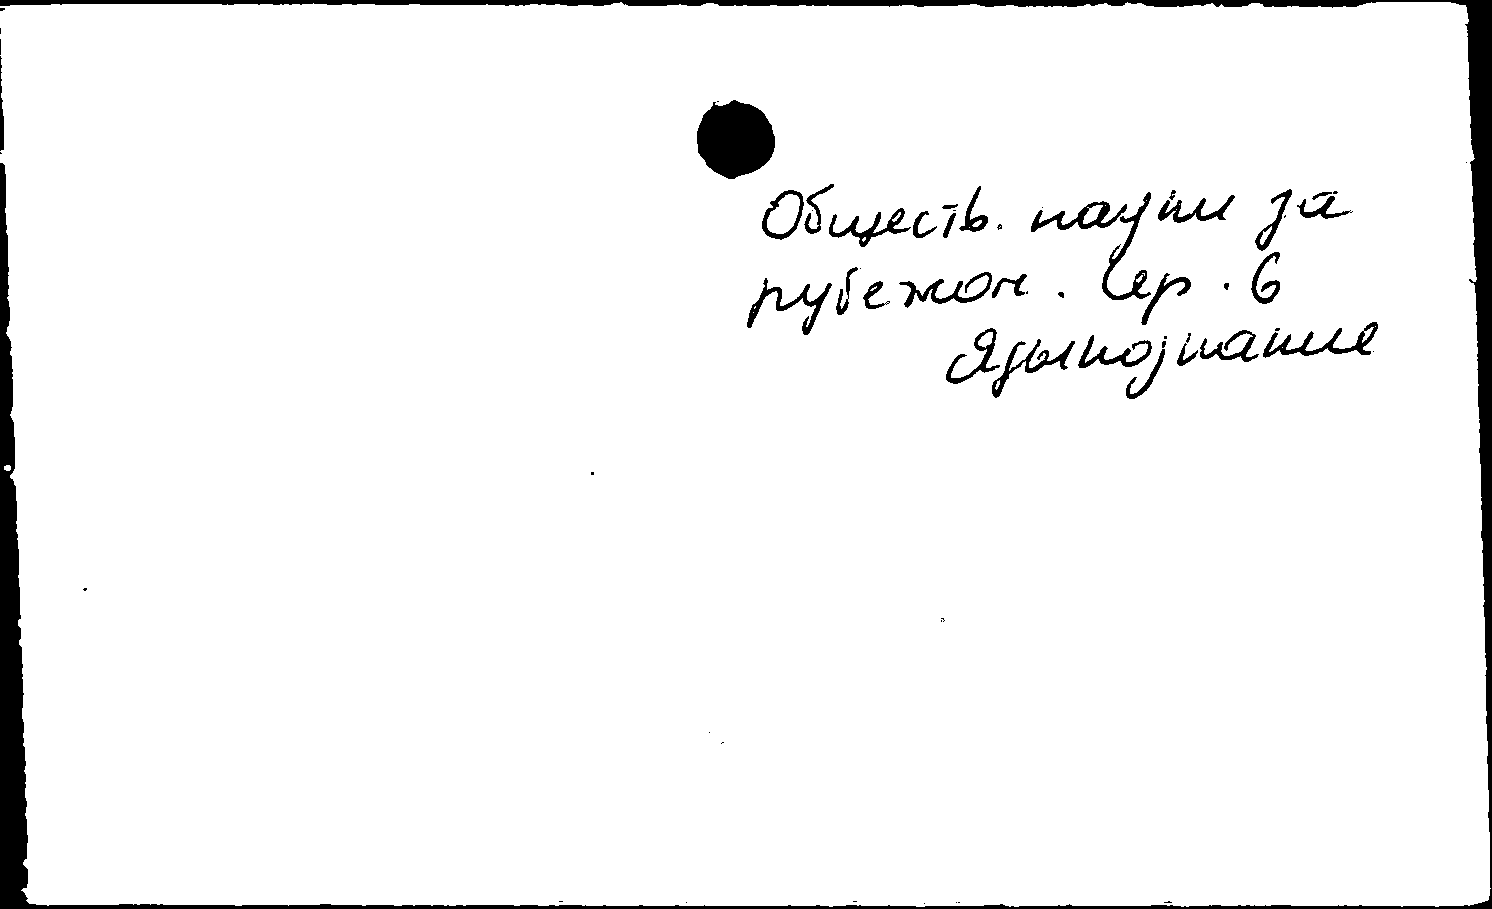 Обществ. науки за
рубежом. Сер. 6
Языкознание